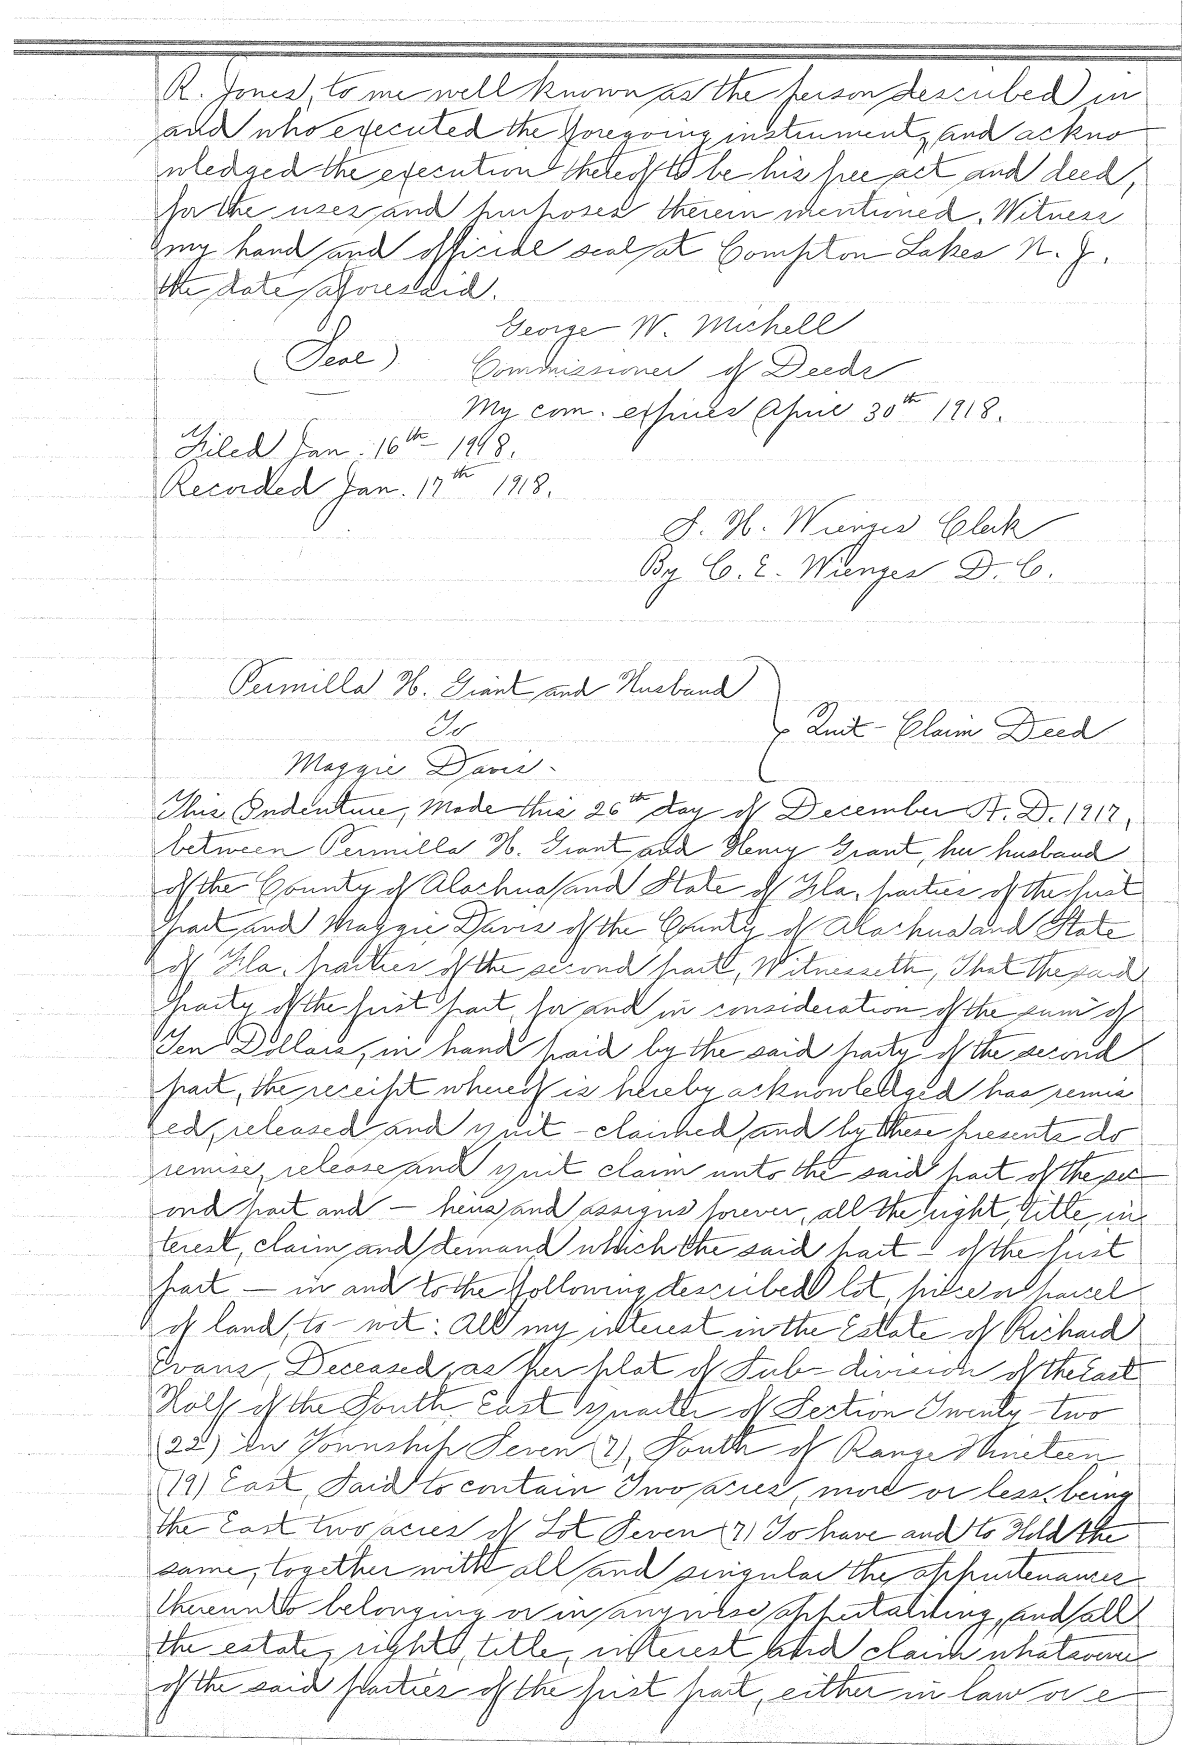 R. Jones, to me well known as the person described in
and who executed the foregoing instrument, and ackno
wledged the execution thereof to be his free act and deed,
for the uses and purposes therein mentioned. Witness
my hand and official seal at Compton Lakes N. J.
the date aforesaid.
George W. Michell
(Seal) Commissioner of Deeds
My com. expires April 30th 1918.
Filed Jan. 16th 1918.
Recorded Jan. 17th 1918.
S. H. Wienges Clerk
By C. E. Wienges D. C.
Permilla H. Grant and Husband
To
Quit-Claim Deed
Maggie Davis.
This Indenture, Made this 26th day of December A. D. 1917,
between Permilla H. Grant and Henry Grant, her husband
of the County of Alachua and State of Fla. parties of the first
part and Maggie Davis of the County of Alachua and State
of Fla. parties of the second part, Witnesseth, That the said
party of the first part, for and in consideration of the sum of
Ten Dollars, in hand paid by the said party of the second
part, the receipt whereof is hereby acknowledged has remis
ed, released and quit-claimed, and by these presents do
remise, release and quit claim unto the said part of the sec
ond part and — heirs and assigns forever, all the right, title, in
terest, claim and demand which the said part - of the first
part — in and to the following described lot, piece or parcel
of land, to-wit: All my interest in the Estate of Richard
Evans, Deceased, as per plat of Sub-division of the East
Half of the South East quarter of Section Twenty-two
(22) in Township Seven (7), South of Range Nineteen
(19) East, Said to contain Two acres, more or less, being
the East two acres of Lot Seven (7) To have and to Hold the
same, together with all and singular the appurtenances
thereunto belonging or in anywise appertaining, and all
the estate, right, title, interest and claim whatsoever
of the said parties of the first part, either in law or e